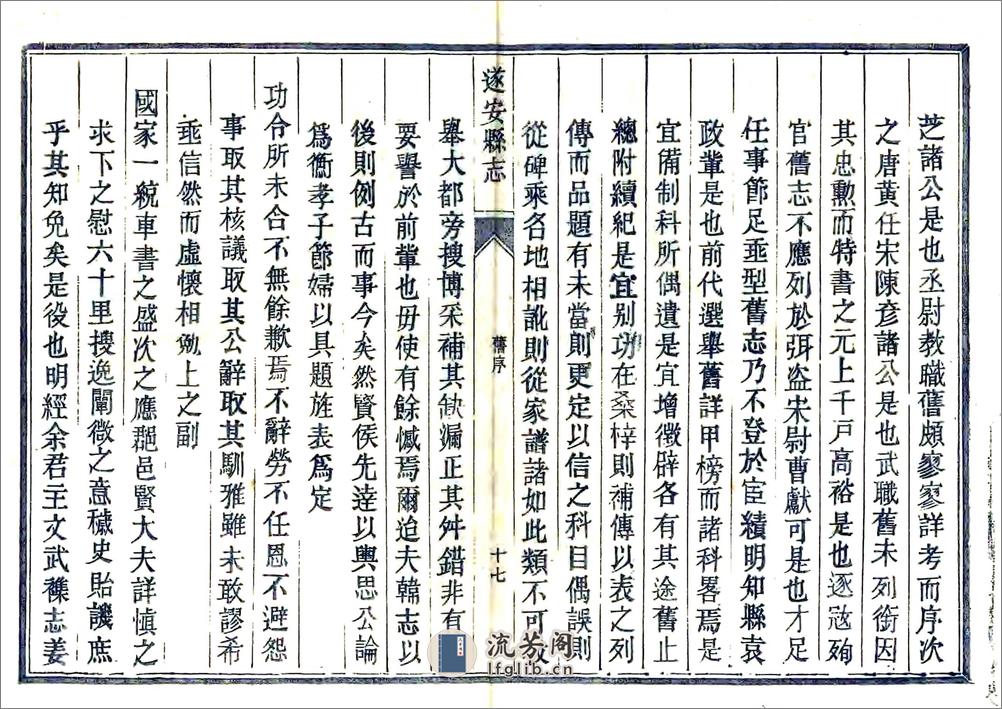 芝諸公是也丞尉教職舊頗寥寥詳考而序次
之唐黃任宋陳彥諸公是也武職舊未列銜因
其忠勳而特書之元上千戸高裕是也逐冦殉
官舊志不應列於弭盗宋尉曹獻可是也才足
任事節足垂型舊志乃不登於宦績明知縣袁
政輩是也前代選舉舊詳甲榜而諸科畧焉是
宜備制科所偶遺是宜增徵辟各有其途舊止
總附續紀是宜别功在桑梓則補傳以表之列
傳而品題有未當則更定以信之科目偶誤則
從碑乘名地相訛則從家譜諸如此類不可枚
遂安縣志
舊序
十七
舉大都旁搜博采補其缺漏正其舛錯非有
要譽於前輩也毋使有餘憾焉爾迫夫韓志以
後則例古而事今矣然賢侯先逹以輿思公論
爲衡孝子節婦以具題旌表爲定
功令所未合不無餘歉焉不辭勞不任恩不避怨
事取其核議取其公辭取其馴雅雖未敢謬希
垂信然而虛懷相勉上之副
國家一統車書之盛次之應郡邑賢大夫詳愼之
求下之慰六十里搜逸闡微之意穢史貽譏庶
乎其知免矣是役也明經余君主文武襍志姜
流芳阁
lfglib.cn